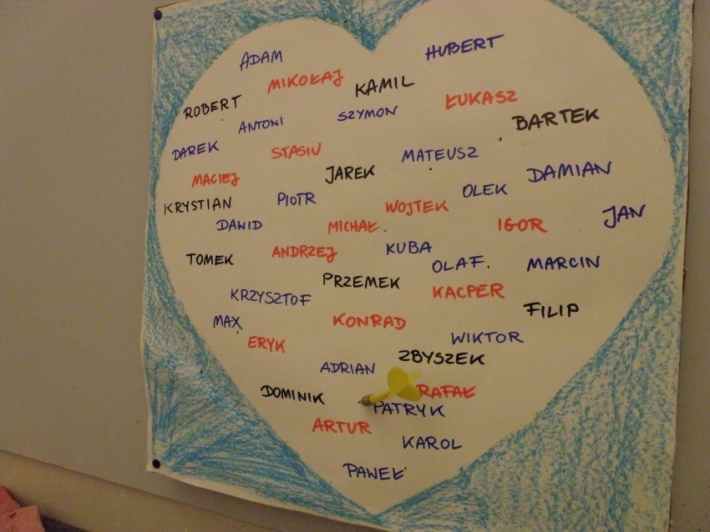 ADAM
HUBERT
MIKOŁAJ
KAMIL
ROBERT
ŁUKASZ
ANTONI
SZYMON
BARTEK
DAREK
STASIU
MATEUSZ
MACIEJ
JAREK
DAMIAN
KRYSTIAN
PIOTR
OLEK
DAWID
MICHAŁ
WOJTEK
IGOR
JAN
TOMEK
ANDRZEJ
KUBA
OLAF.
MARCIN
KRZYSZTOF
PRZEMEK
KACPER
MAX
KONRAD
FILIP
ERYK
WIKTOR
ADRIAN
ZBYSZEK
DOMINIK
RAFAŁ
PATRYK
ARTUR
KAROL
PAWEŁ